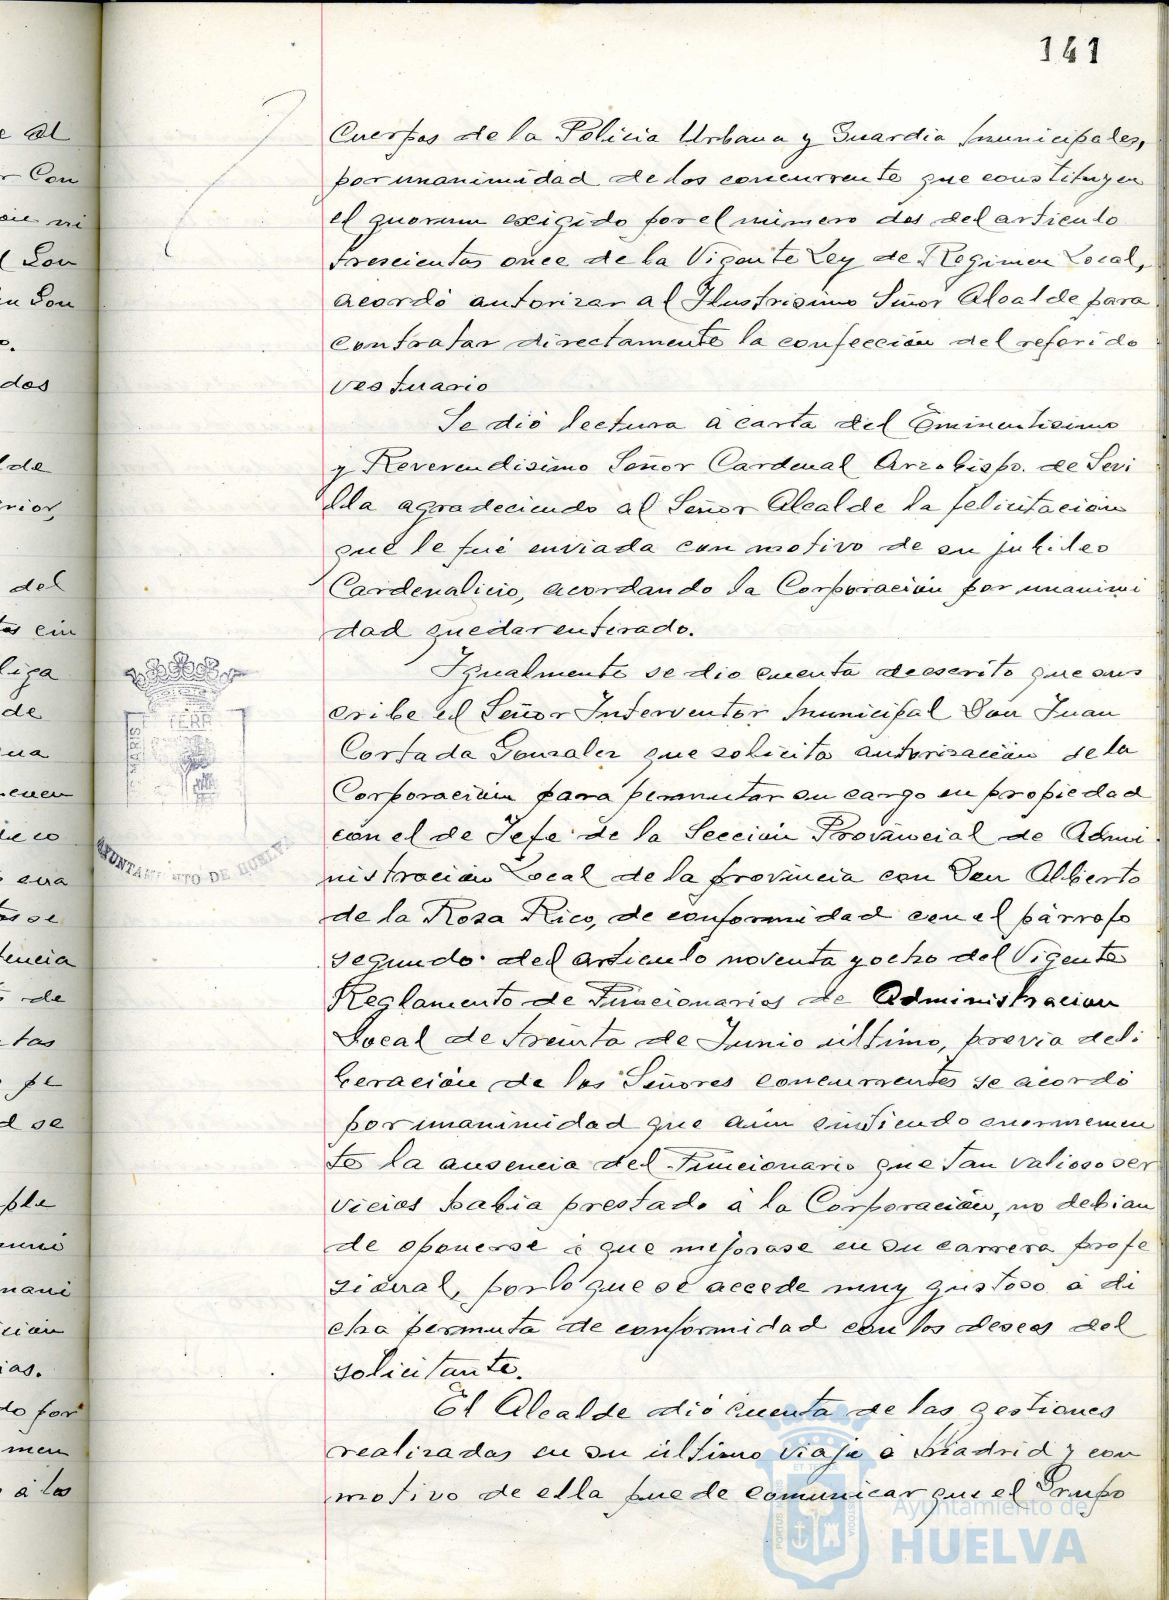 141
Cuerpos de la Policia Urbana y Guardia Municipales,
por unanimidad de los concurrente que constituyen
el quorum exigido por el número dos del articulo
trescientos once de la Vigente Ley de Regimen Local,
acordó autorizar al Ilustrisimo Señor Alcalde para
contratar directamente la confección del referido
vestuario
Se dió lectura á carta del Eminentisimo
y Reverendisimo Señor Cardenal Arzobispo de Sevi
lla agradeciendo al Señor Alcalde la felicitación
que le fué enviada con motivo de su jubileo
Cardenalicio, acordando la Corporación por unanimi
dad quedar enterado.
Igualmente se dio cuenta de escrito que sus
cribe el Señor Interventor Municipal Don Juan
Cortada Gonzalez que solicita autorización de la
Corporación para permutar su cargo en propiedad
con el de Jefe de la Sección Provincial de Admi
nistración Local de la provincia con Don Alberto
de la Rosa Rico, de conformidad con el párrafo
segundo del articulo noventa y ocho del Vigente
Reglamento de Funcionarios de Administracion
Local de treinta de Junio último, previa deli
beración de los Señores concurrentes se acordó
por unanimidad que aún sintiendo enormemen
te la ausencia del Funcionario que tan valioso ser
vicios habia prestado á la Corporación, no debian
de oponerse á que mejorase en su carrera profe
sional, por lo que se accede muy gustoso á di
cha permuta de conformidad con los deseos del
solicitante.
El Alcalde dió cuenta de las gestiones
realizadas en su último viaje á Madrid y con
motivo de ella puede comunicar que el Grupo
e al
r Con
ni
l Don
n Don
o.
dos
l de
rior,
del
liga
de
ua
dico
se
tencia
de
tas
pe
d se
ple
mani
ción
ias.
do por
men
á los
MARIS
TERR
AYUNTAMIENTO DE HUELVA
PORTUS
CUSTODIA
Ayuntamiento de
HUELVA